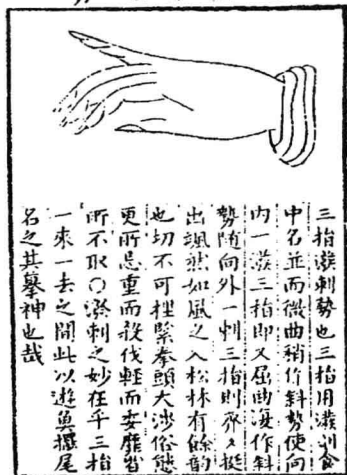 三指潑剌勢也三指用潑剌食
中名並而微曲稍作斜勢使向
內一潑三指即又屈曲復作斜
勢隨向外一剌三指則散以挺
出颯然如風之入松林有餘韵
也切不可捏緊拳頭大涉俗態
更所忌重而殺伐輕而委靡皆
所不取○潑剌之妙在乎三指
一來一去之間此以遊魚擺尾
名之其摹神也哉